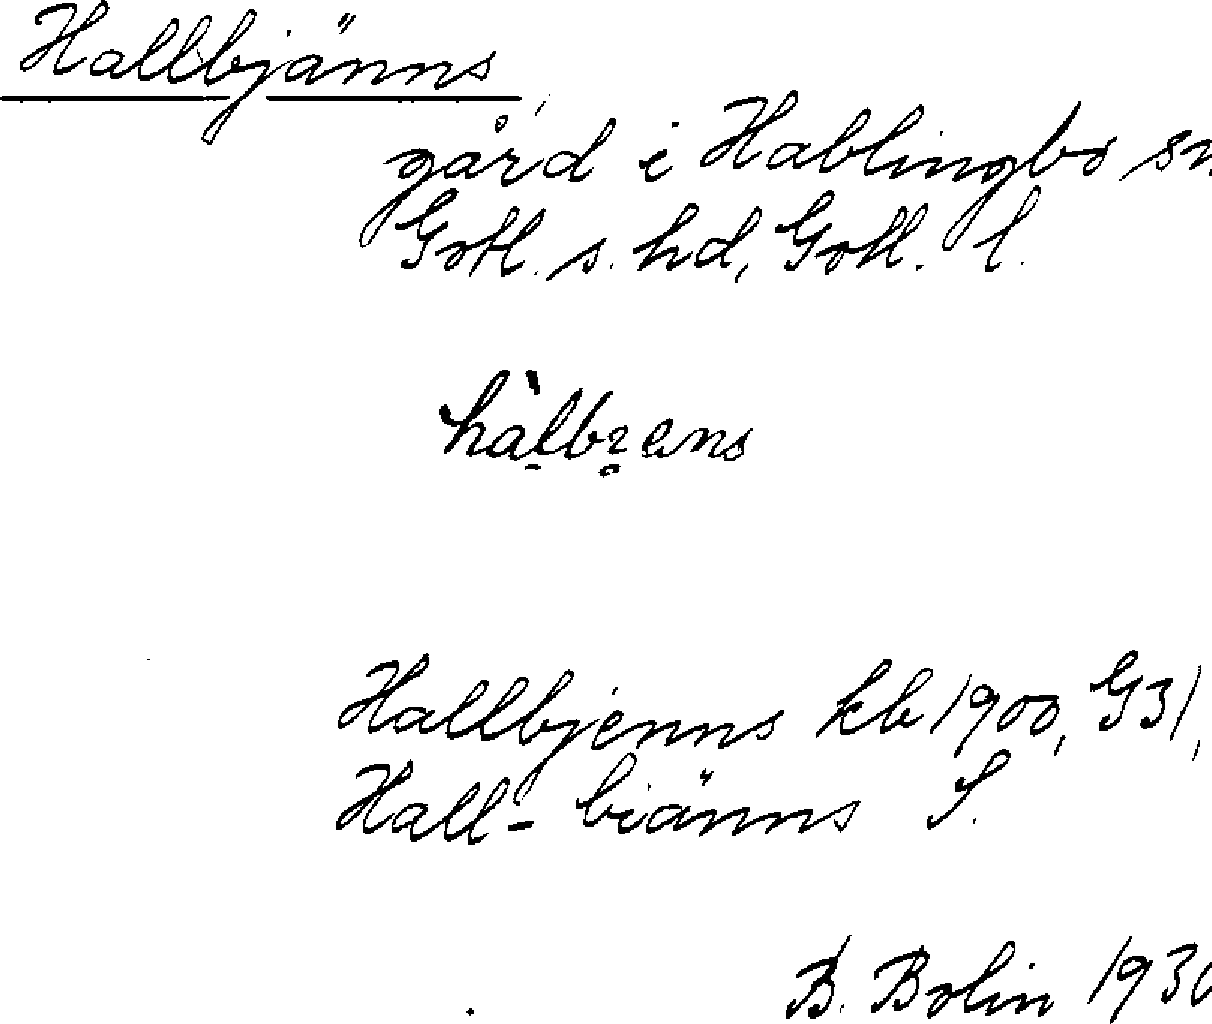 Hallbjänns,
gård i Hablingbo sn
Gotl. s. hd, Gotl. l.
Hallbjenns kb 1900, G31,
Hall-biänns S.
B. Bolin